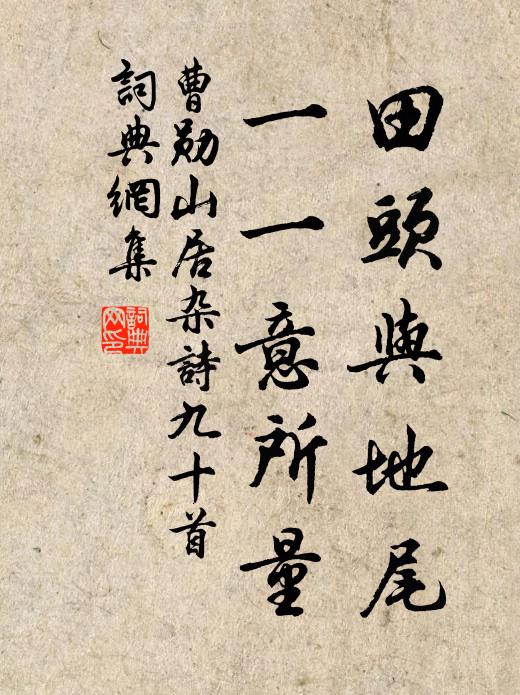 田頭與地尾
一一意所量
曹勛山居杂詩九十首
詞典網集
詞典網印